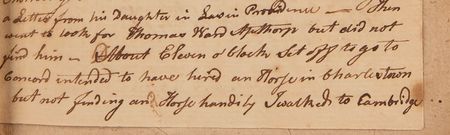 a Letter from his Daughter in Law in Providence — Then
went to look for Thomas Ward Apthorp but did not
find him — About Eleven o'Clock Set off to go to
Concord intended to have hired an Horse in Charlestown
but not finding an Horse handily I walked to Cambridge